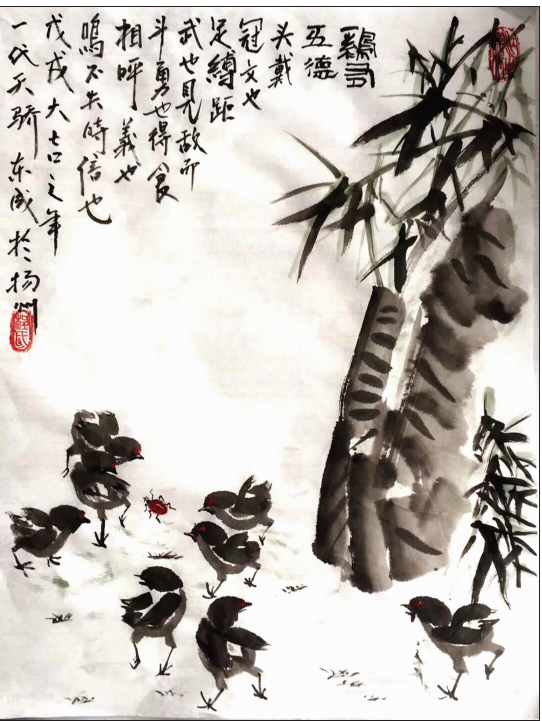 鷄有
五德
头戴
冠文也
足縛距
武也見敌而
斗勇也得食
相呼義也
鳴不失時信也
戊戌大吉之年
一代天骄东成於扬州